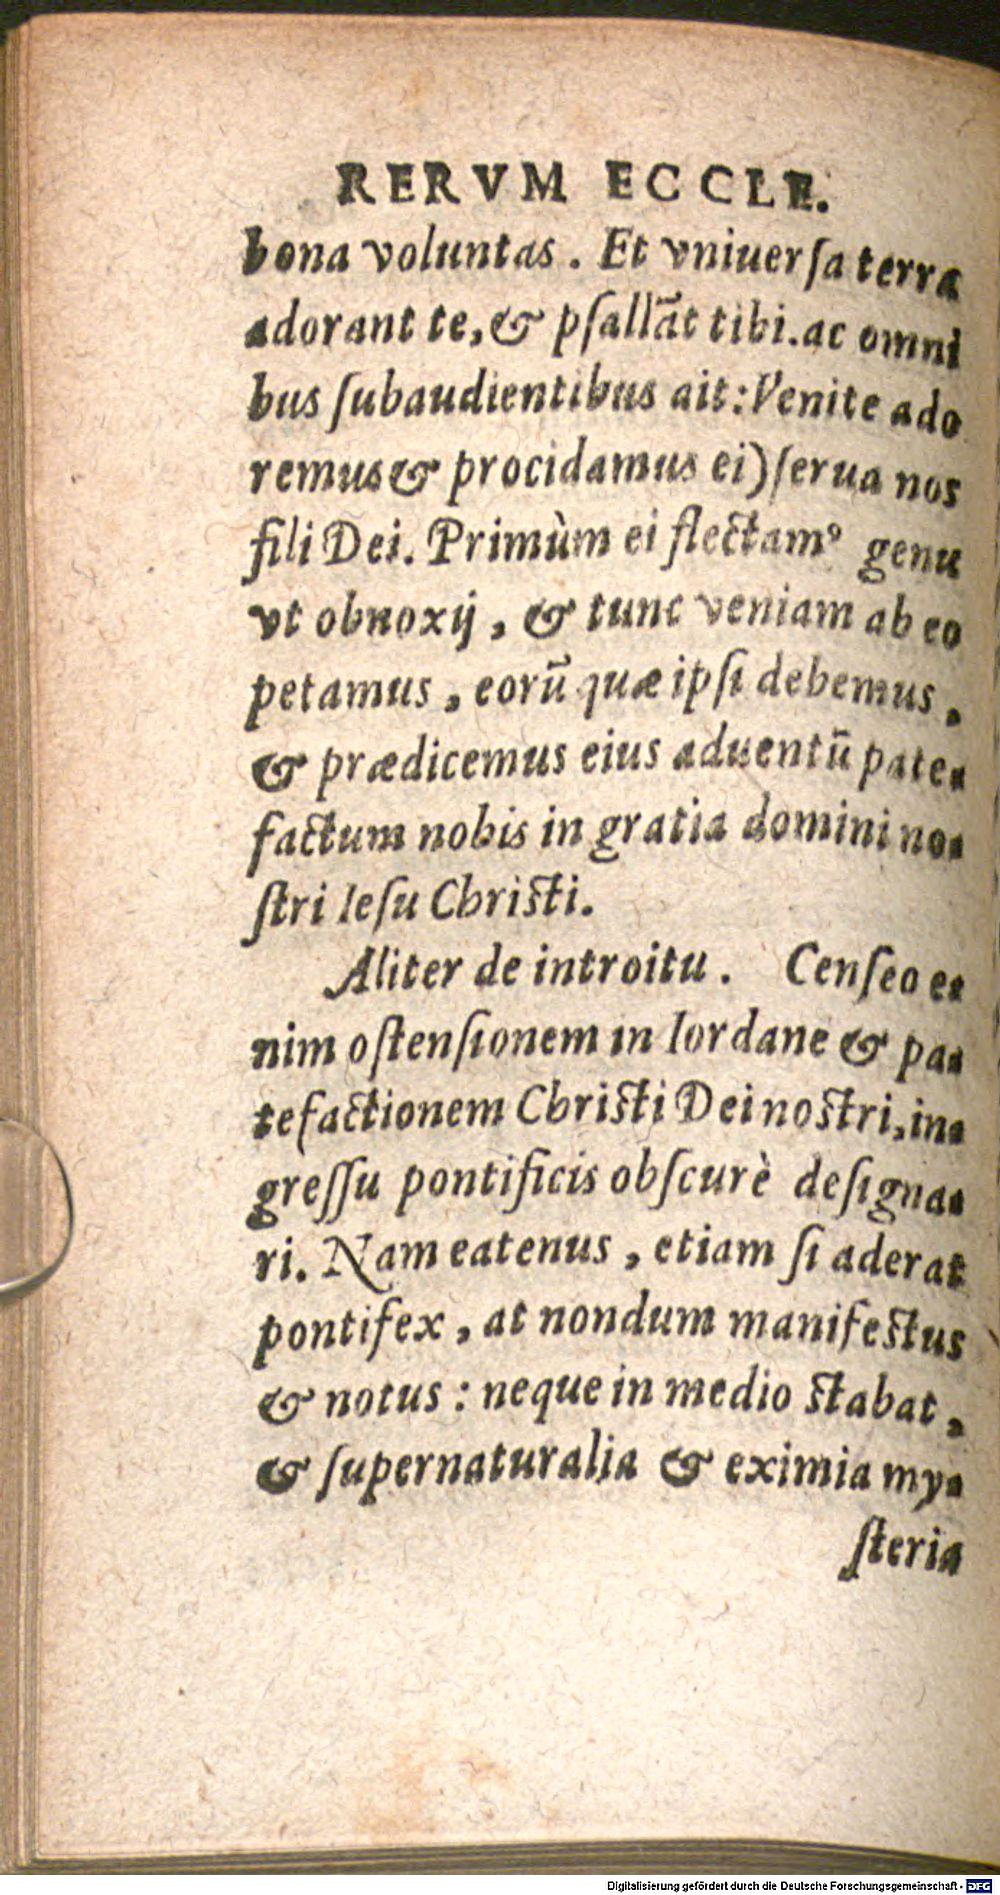 RERVM ECCLE.
bona voluntas. Et vniuerſa terra
adorant te, & pſallāt tibi. ac omni
bus ſubaudientibus ait: Venite ado
remus & procidamus ei) ſerua nos
fili Dei. Primùm ei flectamꝰ genu
vt obnoxij, & tunc veniam ab eo
petamus, eorū quæ ipſi debemus,
& prædicemus eius aduentū pate-
factum nobis in gratia domini no-
ſtri Ieſu Chriſti.
Aliter de introitu. Cenſeo e-
nim oſtenſionem in Iordane & pa-
tefactionem Chriſti Dei noſtri, in-
greſſu pontificis obſcurè deſigna-
ri. Nam eatenus, etiam ſi aderat
pontifex, at nondum manifeſtus
& notus: neque in medio ſtabat,
& ſupernaturalia & eximia my-
ſteria
Digitalisierung gefördert durch die Deutsche Forschungsgemeinschaft - DFG